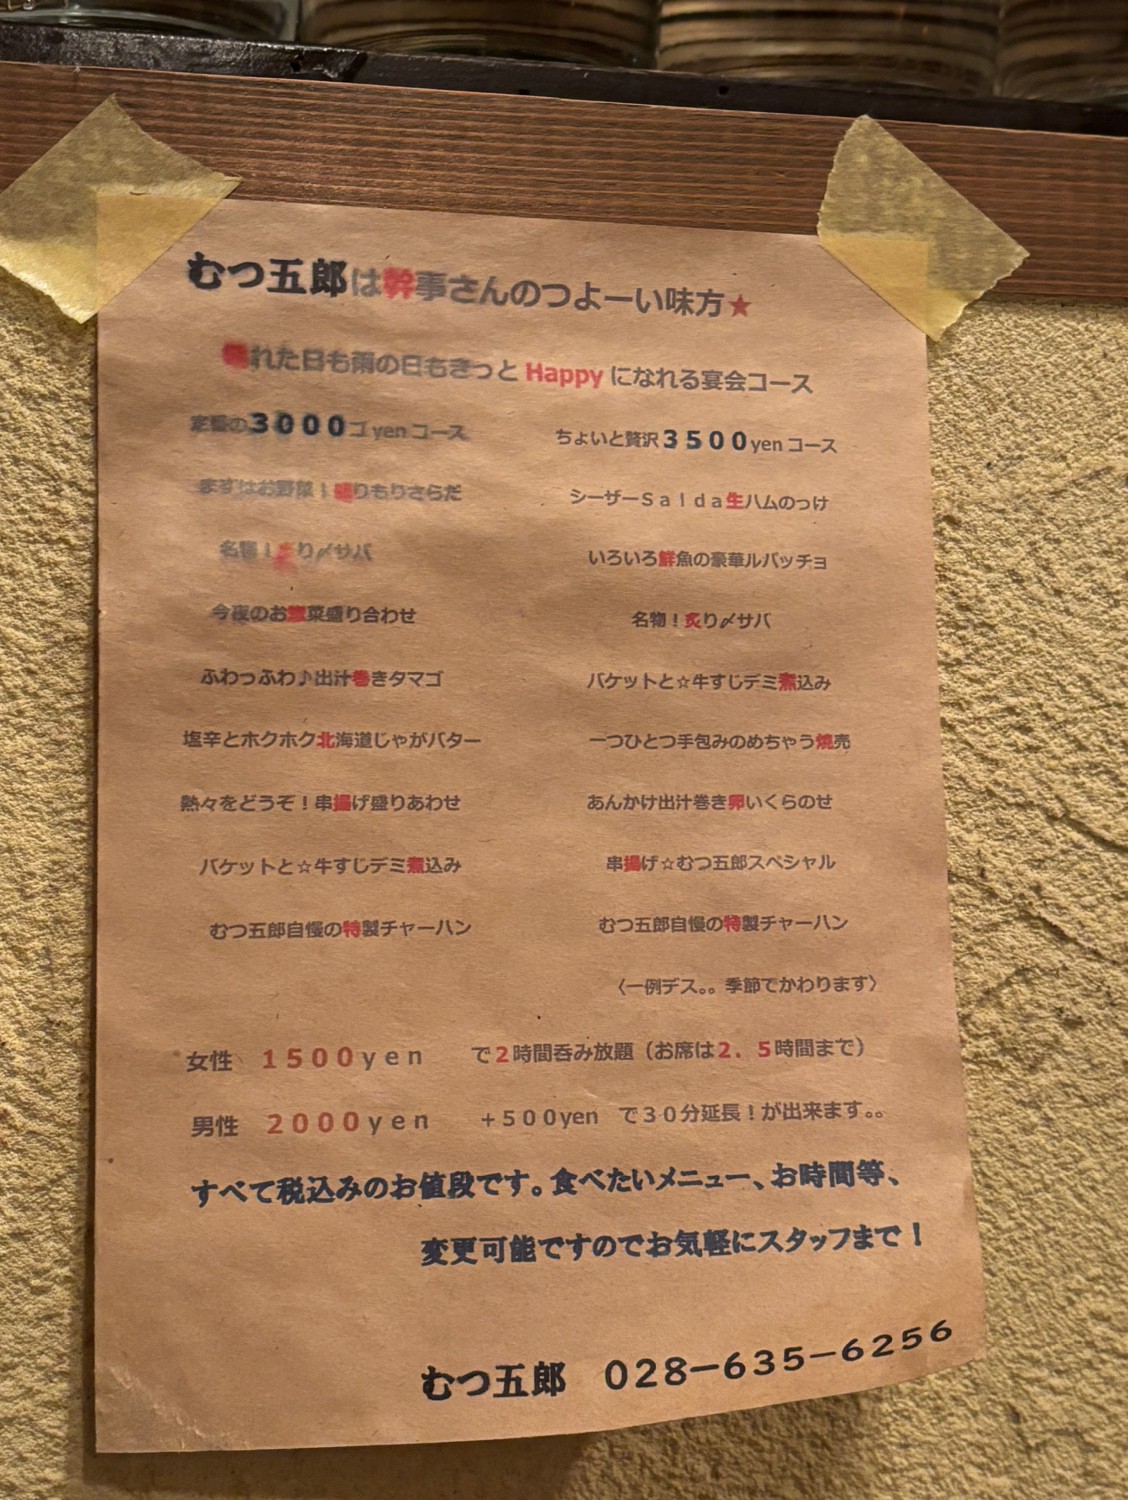 むつ五郎は幹事さんのつよーい味方★
晴れた日も雨の日もきっと Happy になれる宴会コース
定番の3000ゴ yen コース
まずはお野菜！盛りもりさらだ
名物！炙り〆サバ
今夜のお惣菜盛り合わせ
ふわっふわ♪出汁巻きタマゴ
塩辛とホクホク北海道じゃがバター
熱々をどうぞ！串揚げ盛りあわせ
バケットと☆牛すじデミ煮込み
むつ五郎自慢の特製チャーハン
ちょいと贅沢3500yen コース
シーザーSalda生ハムのっけ
いろいろ鮮魚の豪華ルパッチョ
名物！炙り〆サバ
バケットと☆牛すじデミ煮込み
一つひとつ手包みのめちゃう焼売
あんかけ出汁巻き卵いくらのせ
串揚げ☆むつ五郎スペシャル
むつ五郎自慢の特製チャーハン
〈一例デス。。季節でかわります〉
女性 1500yen で2時間呑み放題（お席は2．5時間まで）
男性 2000yen ＋500yen で30分延長！が出来ます。。
すべて税込みのお値段です。食べたいメニュー、お時間等、
変更可能ですのでお気軽にスタッフまで！
むつ五郎 028－635－6256